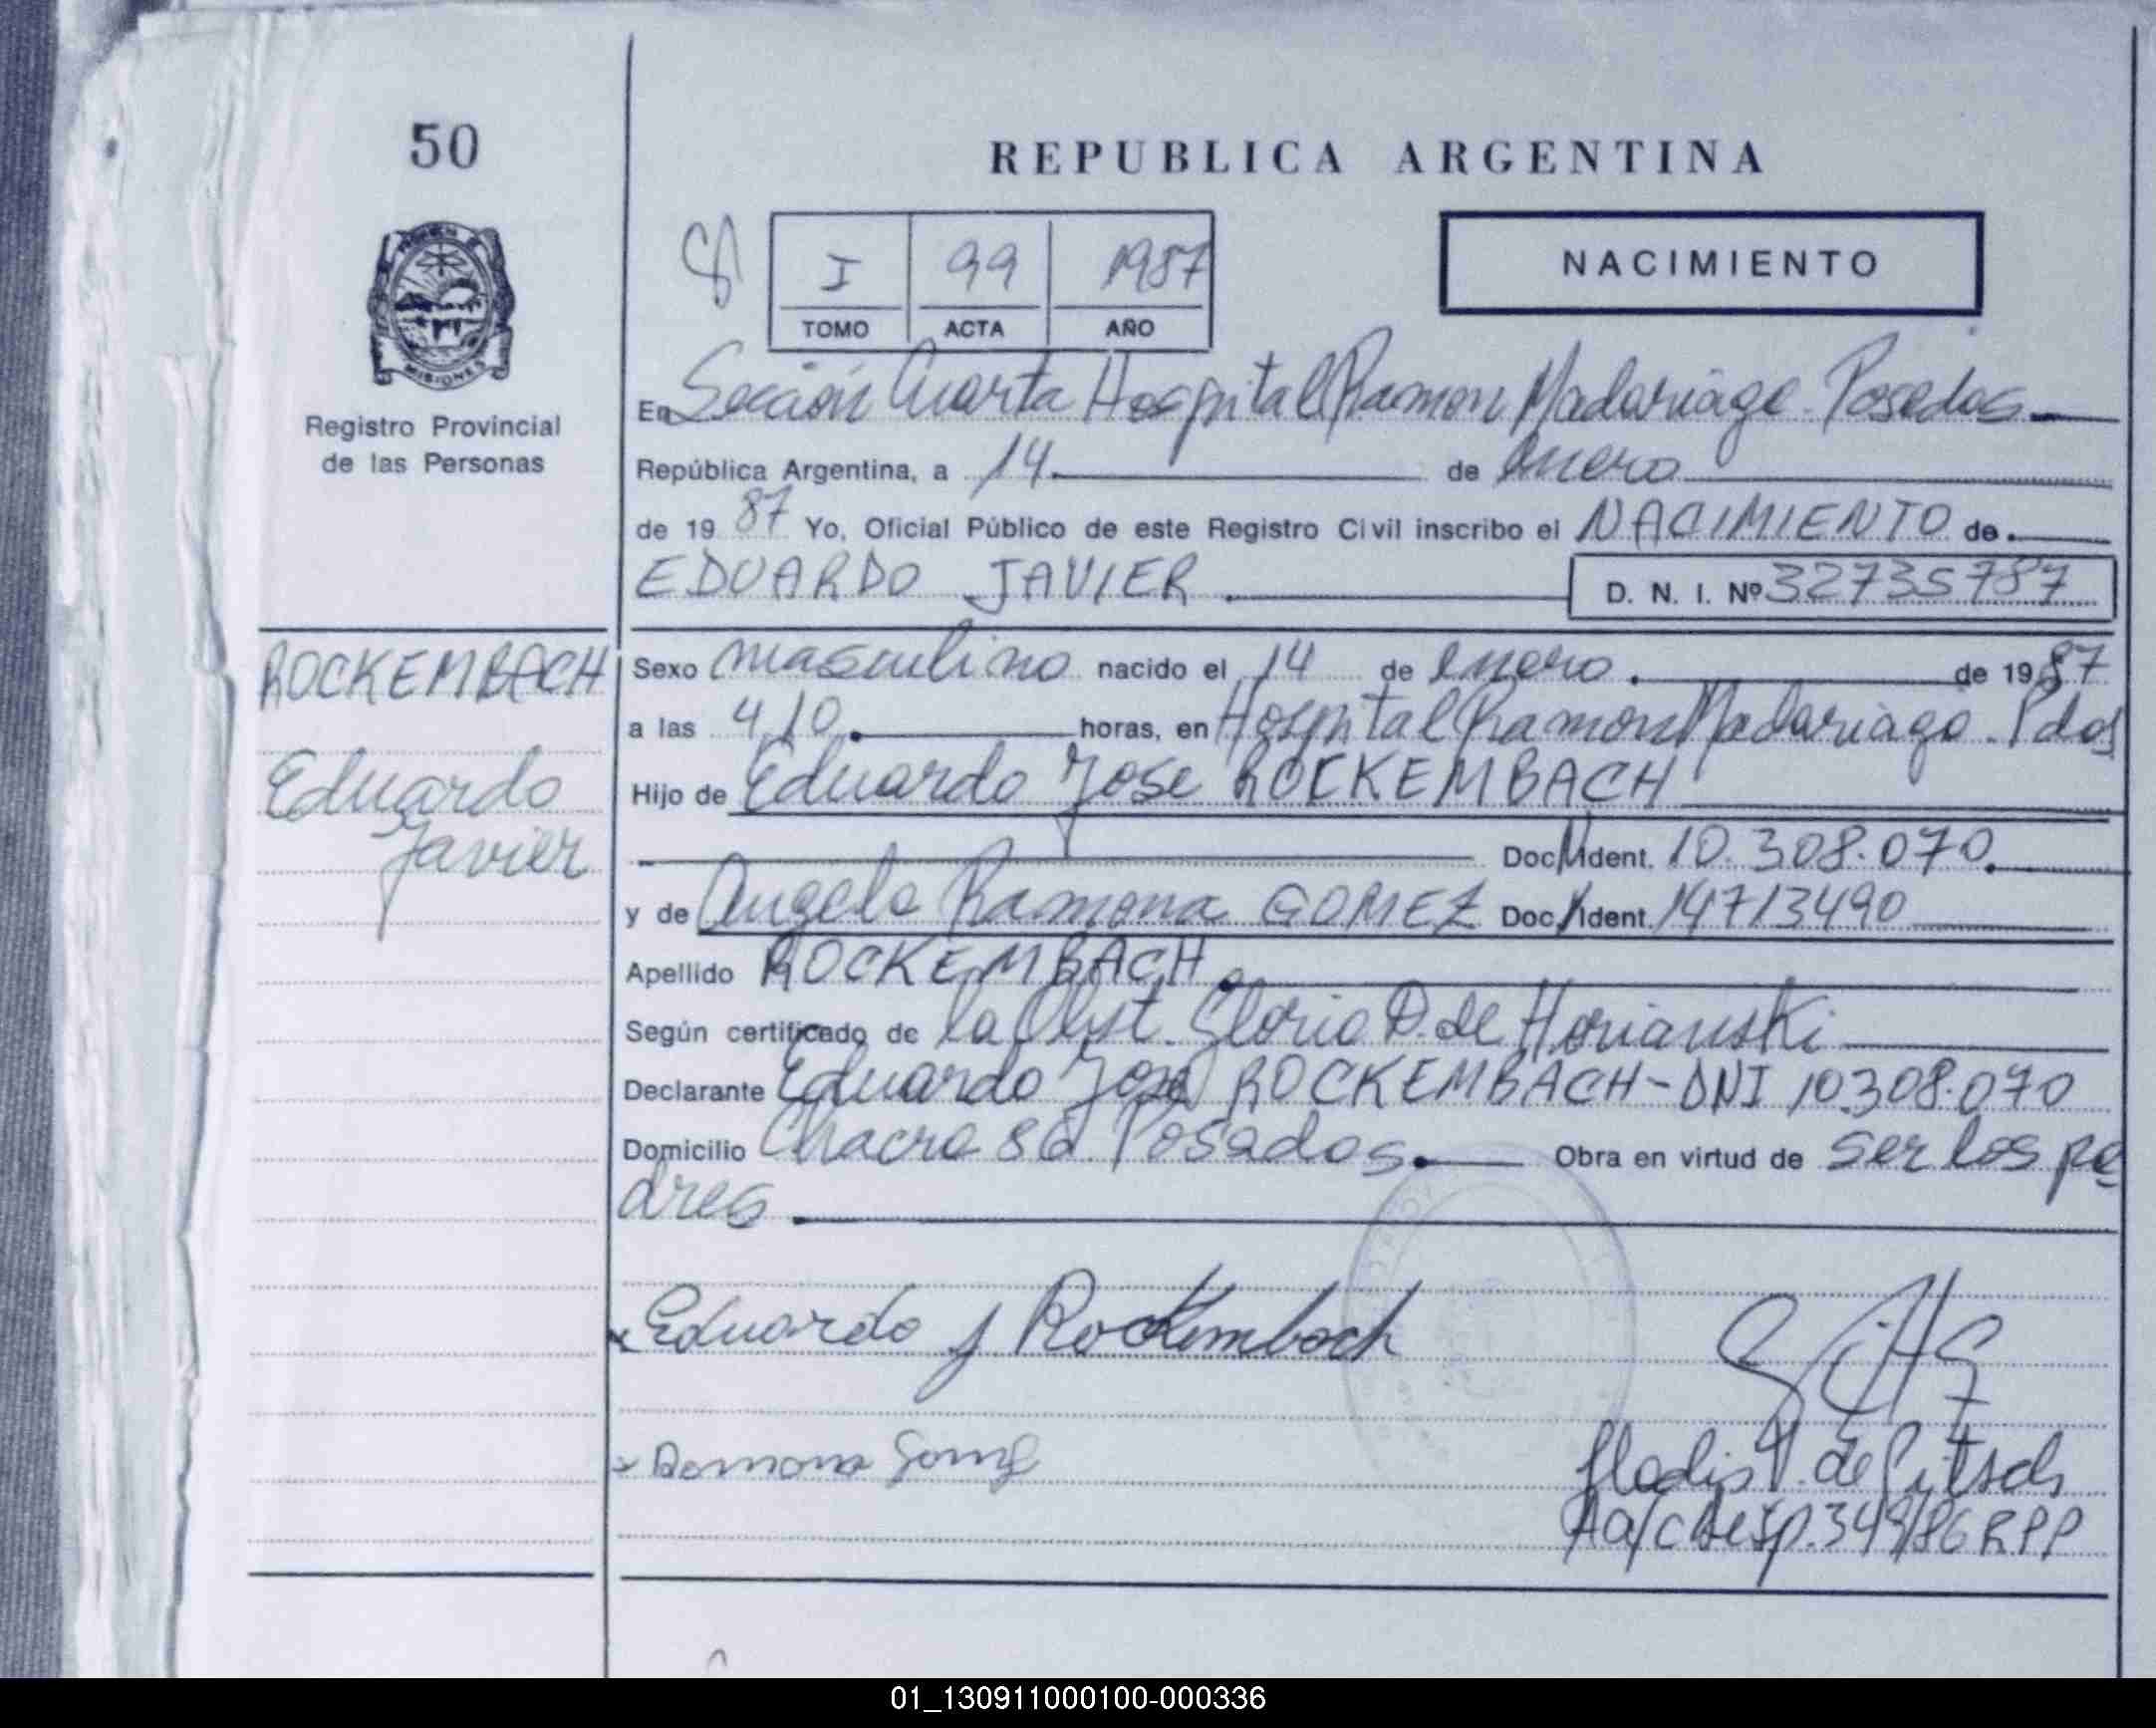 50
REPUBLICA ARGENTINA
I 99 1987
TOMO ACTA AÑO
NACIMIENTO
MISIONES
Registro Provincial
de las Personas
En Sección Cuarta Hospital Ramon Madariaga. Posadas
República Argentina, a 14 de enero
de 1987 Yo, Oficial Público de este Registro Civil inscribo el NACIMIENTO de
EDUARDO JAVIER. D. N. I. Nº 32735787
ROCKEMBACH
Eduardo
Javier
Sexo masculino nacido el 14 de enero. de 1987
a las 4,10. horas, en Hospital Ramon Madariaga. Pdas
Hijo de Eduardo Jose ROCKEMBACH
Doc. Ident. 10.308.070.
y de Angela Ramona GOMEZ Doc. Ident. 14713490
Apellido ROCKEMBACH.
Según certificado de la Obst. Gloria D. de Horianski
Declarante Eduardo José ROCKEMBACH-DNI 10.308.070
Domicilio Chacra 86 Posadas. Obra en virtud de ser los pa
dres.
Eduardo J Rockembach
Ramona Gomez
Gladis V. de Pitsch
A a/c Desp. 349/86 RPP
01_130911000100-000336